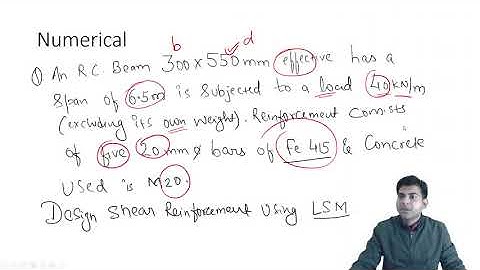 Numerical
b d
① An R.C. Beam 300x550mm effective has a
span of 6.5m is subjected to a load 40 kN/m
(excluding its own weight). Reinforcement consists
of five 20mmø bars of Fe 415 & Concrete
used is M20.
Design Shear Reinforcement Using LSM